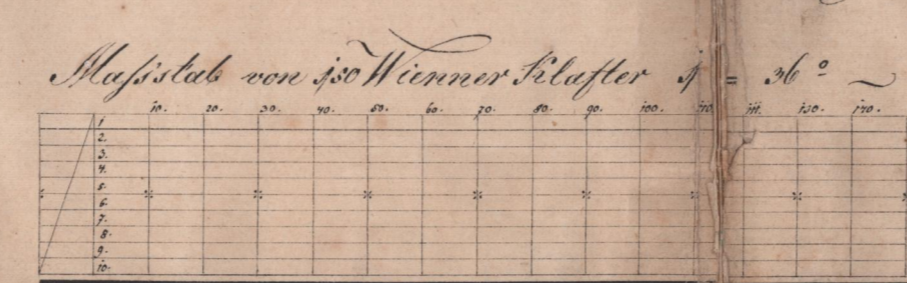 Maßstab von 150 Wienner Klafter 1" = 36°
10. 20. 30. 40. 50. 60. 70. 80. 90. 100. 110. 130. 140.
1
2.
3.
4.
5.
6.
7.
8.
9.
10.